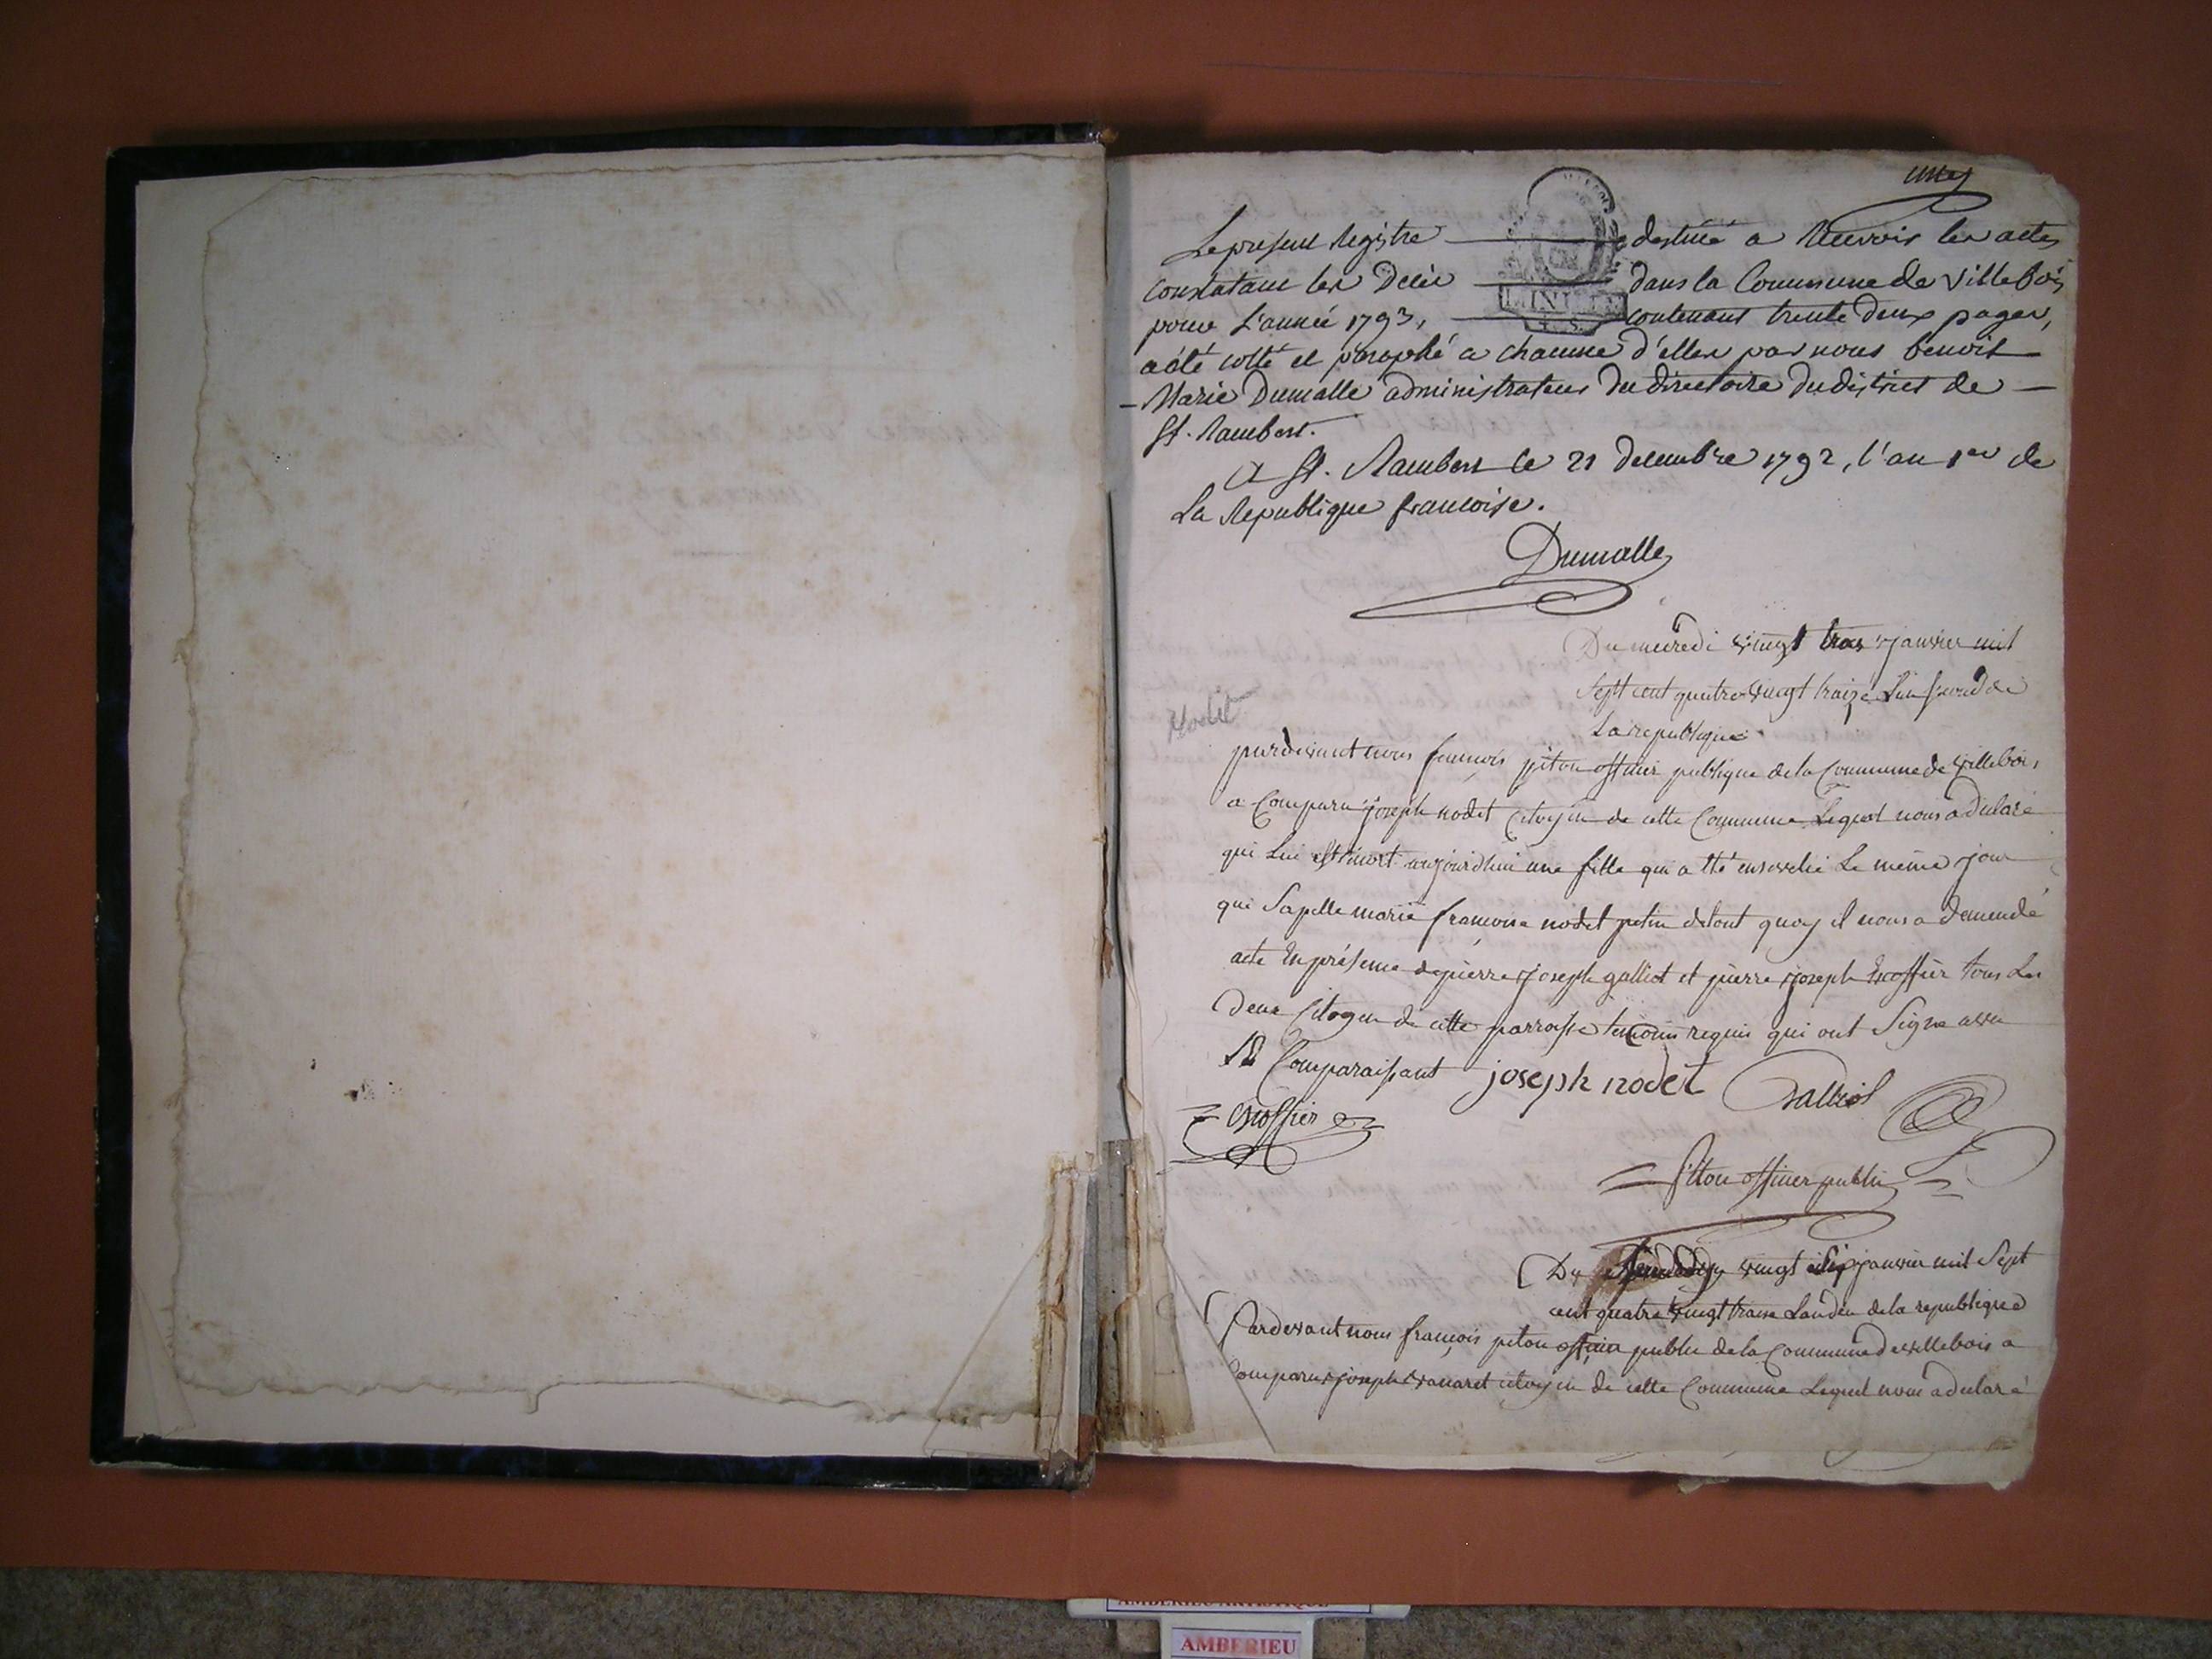 une
Le present Registre destiné a Recevoir les actes
constatant les Décès dans la Commune de villebois
pour L'année 1793, contenant trente deux pages,
a été cotté et paraphé a chacune d'elles par nous benoit
Marie Dumalle administrateur du directoire du district de
St. Rambert.
A St. Rambert le 21 decembre 1792, l'an 1er de
La Republique francoise.
Dumalle
Du mecredi vingt trois janvier mil
Sept cent quatre vingt traize L'an second de
La republique
Nodet
pardevant nous francois piton officier publique de la Commune de villebois
a Comparu joseph nodet Citoyen de cette Commune Lequel nous a declaré
qui Lui est mort aujourdhui une fille qui a été ensevelie Le même jour
qui Sapelle marie francoise nodet de tout quoy il nous a demendé
acte En présence de pierre joseph galliot et pierre joseph Escoffier tous Les
deux Citoyen de cette parroisse temoins requis qui ont Signe avec
Le Comparaissant joseph nodet Galliot
Escoffier
Piton officier public
Du vingt janvier mil Sept
cent quatre vingt traise Lan deu de la republique
Pardevant nous françois piton officier public de la Commune de villebois a
Comparu joseph citoyen de cette Commune Lequel nous a declaré
AMBERIEU ARTISTIQUE
AMBERIEU